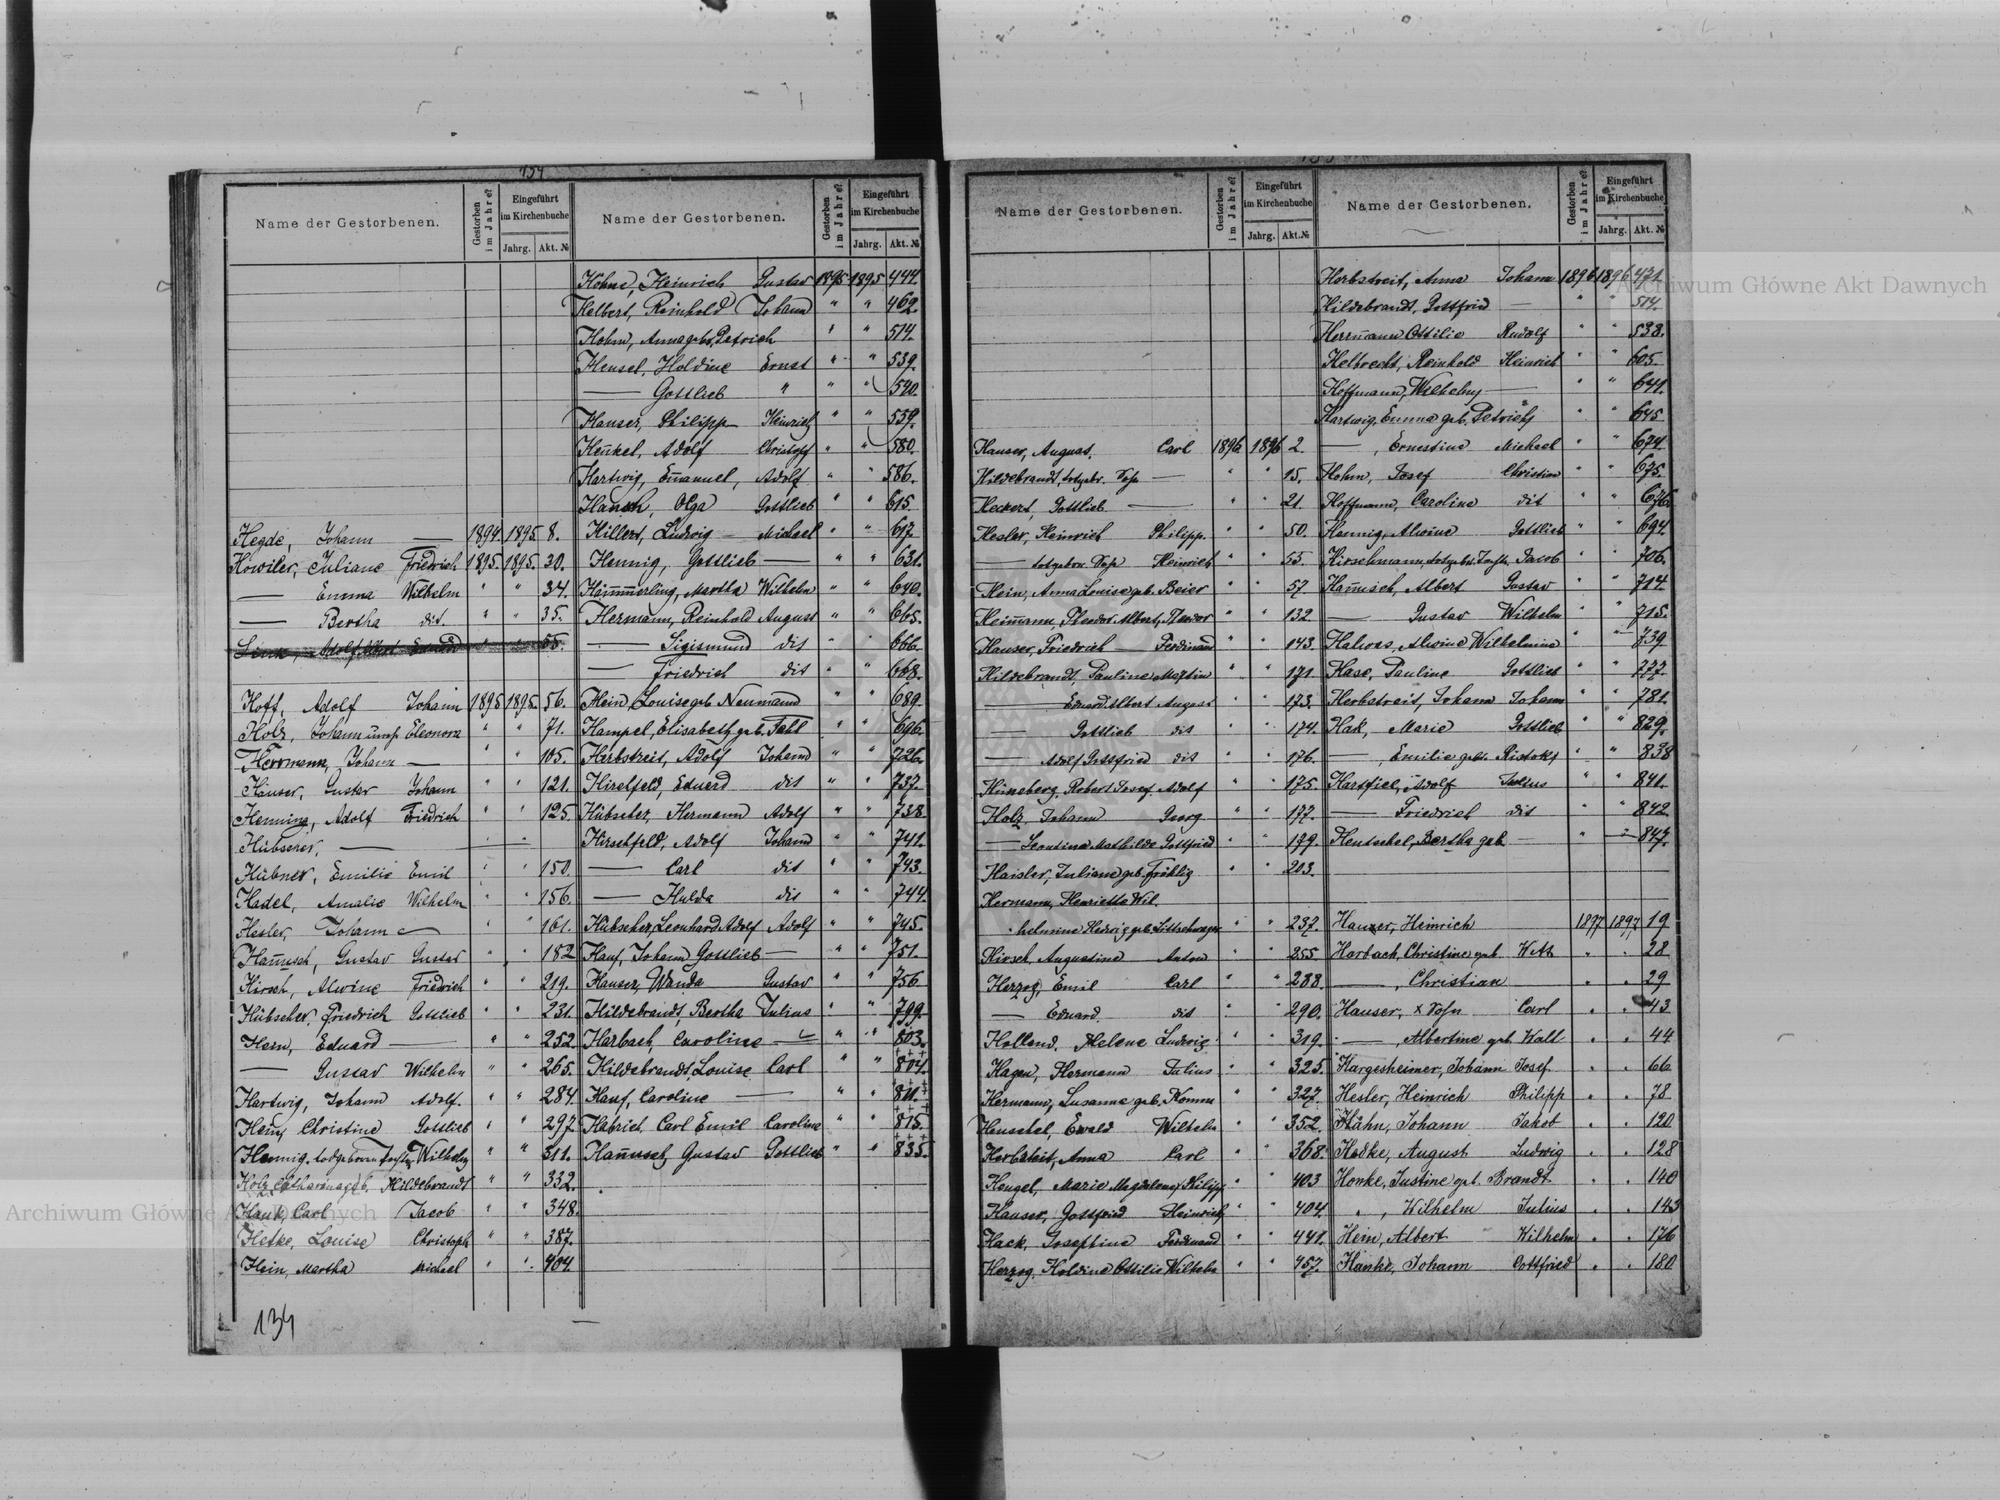 134
Name der Gestorbenen.
Gestorben im Jahre?
Eingeführt im Kirchenbuche
Jahrg.
Akt. №
Name der Gestorbenen.
Gestorben im Jahre?
Eingeführt im Kirchenbuche
Jahrg.
Akt. №
Hegde, Johann — 1894. 1895. 8.
Howiler, Juliane Friedrich 1895. 1895. 30.
— Emma Wilhelm " " 34.
— Bertha dit. " " 35.
Adolf Albert Eduard " " 55.
Hoff, Adolf Johann 1895 1895. 56.
Holz, Johann unep. Eleonora " " 71.
Herrmann, Johann — " " 105.
Hauser, Gustav Johann " " 121.
Henning, Adolf Friedrich " " 125.
Hübscher, —
Hübner, Emilie Emil " " 150.
Hadel, Amalie Wilhelm " " 156.
Hesler, Johann — " " 161.
Hannsch, Gustav Gustav " " 182
Hirsch, Alwine Friedrich " " 219.
Hübscher, Friedrich Gottlieb " " 231.
Hein, Eduard — " " 252.
— Gustav Wilhelm " " 265.
Hartwig, Johann Adolf. " " 284.
Christine Gottlieb " " 297.
Hennig, todgeboren Wilhelm " " 311.
Holz Catharina geb. Hildebrandt " " 332.
Hauk, Carl Jacob " " 348.
Hetke, Louise Christoph " " 387.
Hein, Martha Michael " " 404.
134
Höhne, Heinrich Gustav 1895 1895 444.
Helbert, Reinhold Johann " " 462.
Hohm, Anna geb. Petrich " " 514.
Hensel, Holdine Ernst " " 539.
— Gottlieb " " " 540.
Hauser, Philipp Heinrich " " 559.
Henkel, Adolf Christoph " " 580.
Hartwig, Emanuel, Adolf " " 586.
Hansch, Olga Gottlieb " " 615.
Hillert, Ludwig — Michael " " 617.
Hennig, Gottlieb — " " 631.
Hämmerling, Martha Wilhelm " " 640.
Hermann, Reinhold August " " 665.
— Sigismund dit " " 666.
— Friedrich dit " " 668.
Hein, Louise geb. Neumann " " 689.
Hampel, Elisabeth geb. Fahl " " 696.
Herbstreit, Adolf Johann " " 726.
Hirselfeld, Eduard dit " " 737.
Hübscher, Hermann Adolf " " 738.
Hirschfeld, Adolf Johann " " 741.
— Carl dit " " 743.
— Hulda dit " " 744.
Hübscher, Leonhard Adolf Adolf " " 745.
Hauf, Johann Gottlieb — " " 751.
Hauser, Wanda Gustav " " 756
Hildebrandt, Bertha Julius " " 799.
Harbach, Caroline — " " 803.
Hildebrandt, Louise Carl " " 804.
Hauf, Caroline — " " 811.
Habrich, Carl Emil Caroline " " 815.
Hannusch, Gustav Gottlieb " " 835.
Name der Gestorbenen.
Gestorben im Jahre?
Eingeführt im Kirchenbuche
Jahrg.
Akt. №
Name der Gestorbenen.
Gestorben im Jahre?
Eingeführt im Kirchenbuche
Jahrg.
Akt. №
Hauser, August. Carl 1896 1896 2.
Hildebrandt, totgebr. — " " 15.
Heckert, Gottlieb — " " 21.
Hesler, Heinrich Philipp. " " 50.
— totgebor. Heinrich " " 55.
Hein, Anna Louise geb. Beier " " 57.
Heimann, Theodor Albert, Theodor " " 132.
Hauser, Friedrich Ferdinand " " 143.
Hildebrandt, Pauline Martin " " 171.
— Eduard Albert August " " 173.
— Gottlieb dit " " 174.
— Adolf Gottfried dit " " 176.
Hüneberg, Robert Josef Adolf " " 175.
Holz Johann Georg " " 177.
— Leontina Mathilde Gottfried " " 179.
Haisler, Juliane geb. Fröhlig " " 203.
Hermann, Henriette Wil.
helmine Hedwig geb. " " 237.
Hirsch, Augustine Anton " " 255.
Herzog, Emil Carl " " 288.
— Eduard dit " " 290.
Holland, Helene Ludwig " " 319.
Hagen, Hermann Julius " " 325.
Hermann, Susanna geb. Komm " " 327.
Henschel, Ewald Wilhelm " " 352.
Herbsteit, Anna Carl " " 368.
Hengel, Marie Magdalena Philipp " " 403
Hauser, Gottfried Heinrich " " 404.
Hack, Josephine Ferdinand " " 441.
Herzog, Holdine Ottilie Wilhelm " " 457.
Herbstreit, Anna Johann 1896 1896 431.
Hildebrandt, Gottfried — " " 514.
Herrmann Ottilie Rudolf " " 538.
Helbrecht, Reinhold Heinrich " " 605.
Hoffmann, Wilhelm — " " 641.
Hartwig, Emma geb. Petrich " " 645
— , Ernestine Michael " " 674.
Hohm, Josef Christian " " 675.
Hoffmann, Caroline dit " " 676.
Hennig, Alwine Gottlieb " " 694.
Hirschmann, totgeb. Jacob " " 706.
Hannsch, Albert Gustav " " 714.
— Gustav Wilhelm " " 715.
Alwine Wilhelmine " " 739
Hase, Pauline Gottlieb " " 777.
Herbstreit, Johann Johann " " 781.
Hak, Marie Gottlieb " " 829.
— , Emilie geb. " " 838
Hartfiel, Adolf Julius " " 841.
— Friedrich dit " " 842.
Hentschel, Bertha geb. — " " 847.
Hauzer, Heinrich 1897 1897 19
Harbach, Christine geb. " " 28
— , Christian " " 29
Hauser, × Carl " " 43
— , Albertine geb. Wall " " 44
Hargesheimer, Johann Josef. " " 66
Hesler, Heinrich Philipp " " 78
Hähn, Johann Jakob " " 120
Hadke, August Ludwig " " 128
Honke, Justine geb. Brandt " " 140
" , Wilhelm Julius " " 143
Hein, Albert Wilhelm " " 176
Hanke, Johann Gottfried " " 180
Archiwum Główne Akt Dawnych
Archiwum Główne Akt Dawnych